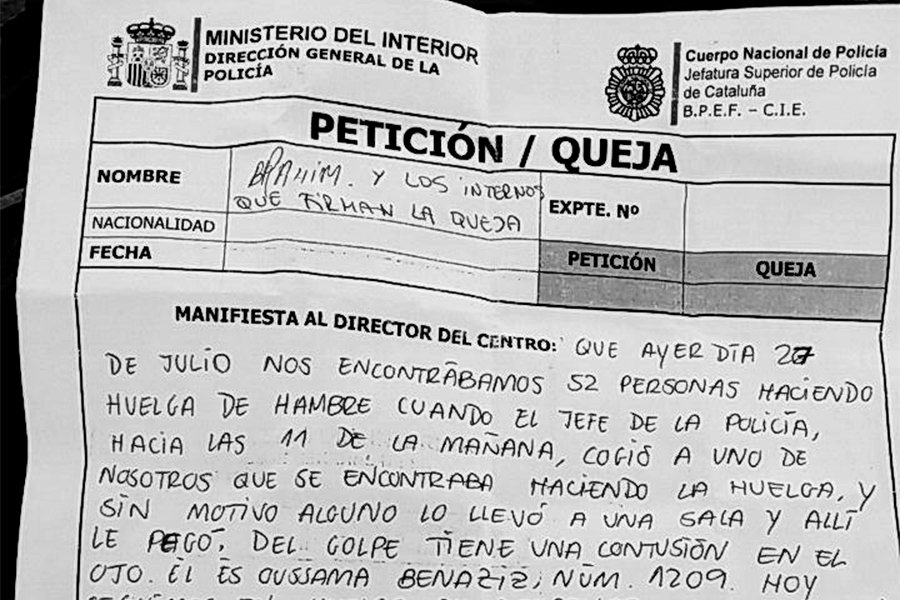 MINISTERIO DEL INTERIOR
DIRECCIÓN GENERAL DE LA
POLICÍA
Cuerpo Nacional de Policía
Jefatura Superior de Policía
de Cataluña
B.P.E.F. – C.I.E.
PETICIÓN / QUEJA
NOMBRE
BRAHIM. Y LOS INTERNOS
QUE FIRMAN LA QUEJA
EXPTE. Nº
NACIONALIDAD
FECHA
PETICIÓN
QUEJA
MANIFIESTA AL DIRECTOR DEL CENTRO: QUE AYER DÍA 27
DE JULIO NOS ENCONTRÁBAMOS 52 PERSONAS HACIENDO
HUELGA DE HAMBRE CUANDO EL JEFE DE LA POLICÍA,
HACIA LAS 11 DE LA MAÑANA, COGIÓ A UNO DE
NOSOTROS QUE SE ENCONTRABA HACIENDO LA HUELGA, Y
SIN MOTIVO ALGUNO LO LLEVÓ A UNA SALA Y ALLÍ
LE PEGÓ. DEL GOLPE TIENE UNA CONTUSIÓN EN EL
OJO. ÉL ES OUSSAMA BENAZIZ, NÚM. 1209. HOY